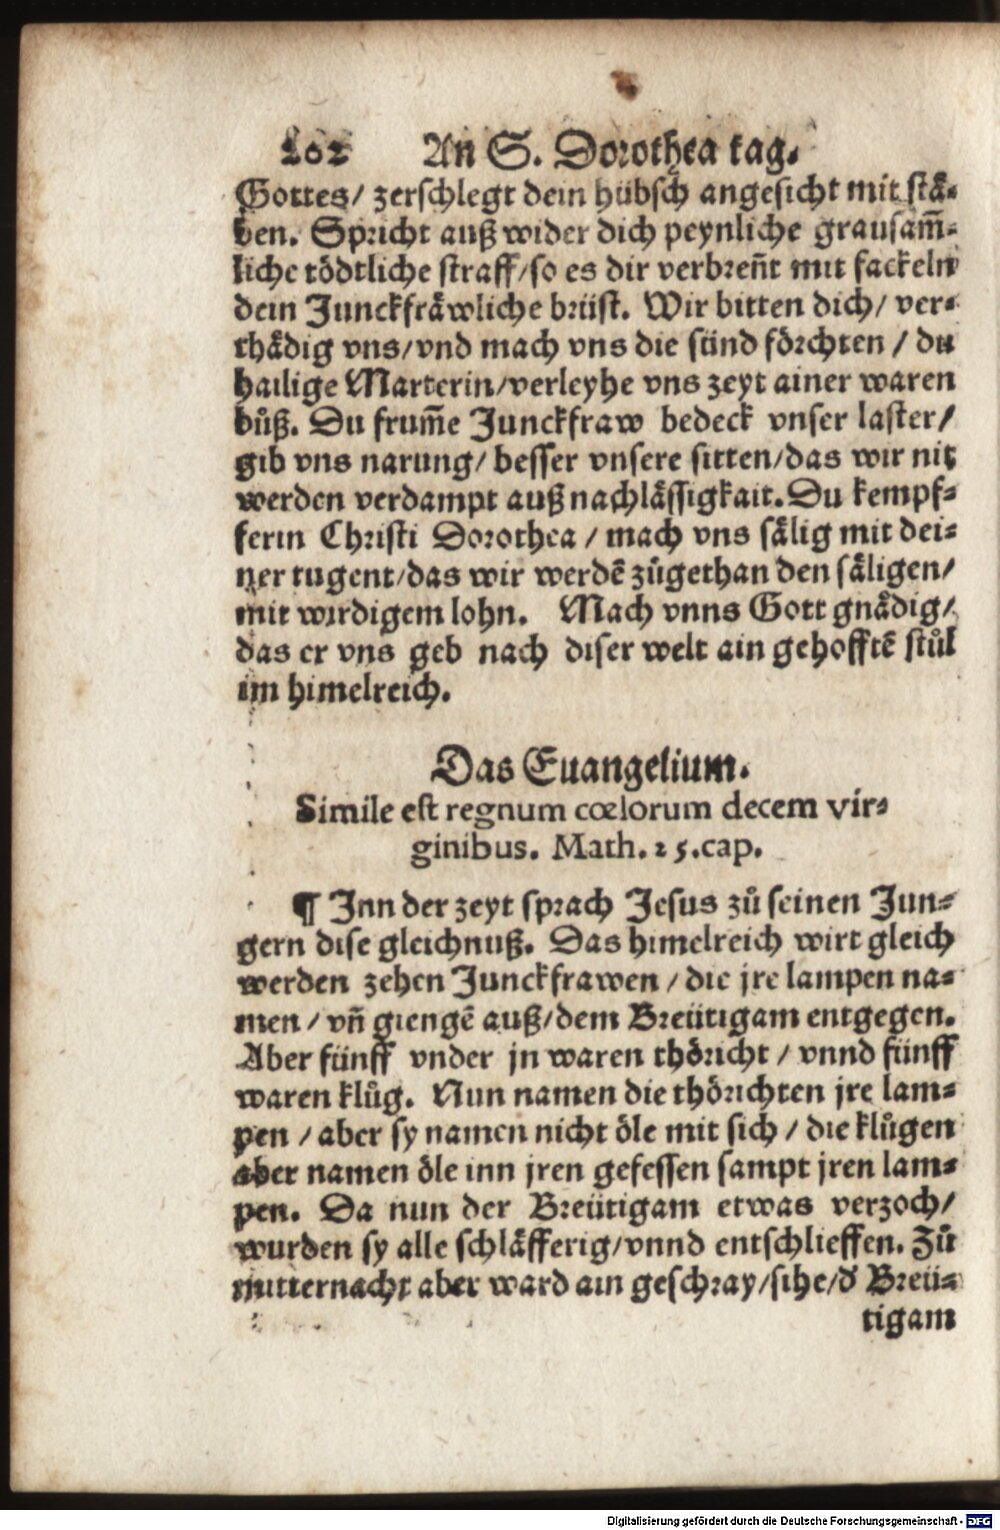 202 An S. Dorothea tag.
Gottes/ zerschlegt dein hübsch angesicht mit stå-
ben. Spricht auß wider dich peynliche grausam̃-
liche tödtliche straff/so es dir verbreñt mit fackeln
dein Junckfråwliche brüst. Wir bitten dich/ ver-
thådig vns/vnd mach vns die sünd förchten / du
hailige Marterin/verleyhe vns zeyt ainer waren
bůß. Du frum̃e Junckfraw bedeck vnser laster/
gib vns narung/ besser vnsere sitten/das wir nit
werden verdampt auß nachlåssigkait. Du kempf-
ferin Christi Dorothea / mach vns sålig mit dei-
ner tugent/das wir werdẽ zůgethan den såligen/
mit wirdigem lohn. Mach vnns Gott gnådig/
das er vns geb nach diser welt ain gehofftẽ stůl
im himelreich.
Das Euangelium.
Simile est regnum cœlorum decem vir-
ginibus. Math. 25.cap.
¶ Inn der zeyt sprach Jesus zů seinen Jun-
gern dise gleichnuß. Das himelreich wirt gleich
werden zehen Junckfrawen / die jre lampen na-
men / vñ giengẽ auß/dem Breütigam entgegen.
Aber fünff vnder jn waren thöricht / vnnd fünff
waren klůg. Nun namen die thörichten jre lam-
pen / aber sy namen nicht öle mit sich / die klůgen
aber namen öle inn jren gefessen sampt jren lam-
pen. Da nun der Breütigam etwas verzoch/
wurden sy alle schlåfferig/vnnd entschlieffen. Zů
mitternacht aber ward ain geschray/sihe/d' Breü-
tigam
Digitalisierung gefördert durch die Deutsche Forschungsgemeinschaft - DFG